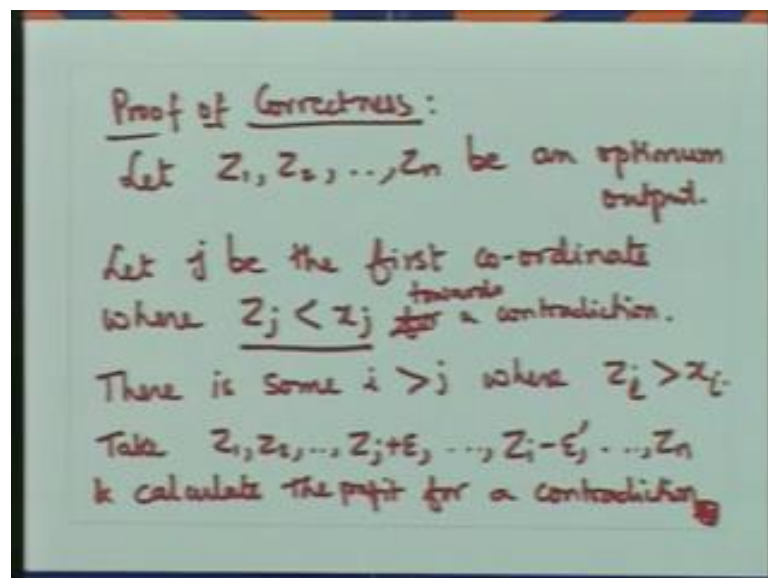 Proof of Correctness:
Let Z₁, Z₂, .., Zn be an optimum
output.
Let j be the first co-ordinate
where Zj < xj towards a contradiction.
There is some i > j where Zi > xi.
Take Z₁, Z₂, .., Zj+ε, ..., Zi-ε', ..., Zn
& calculate the profit for a contradiction